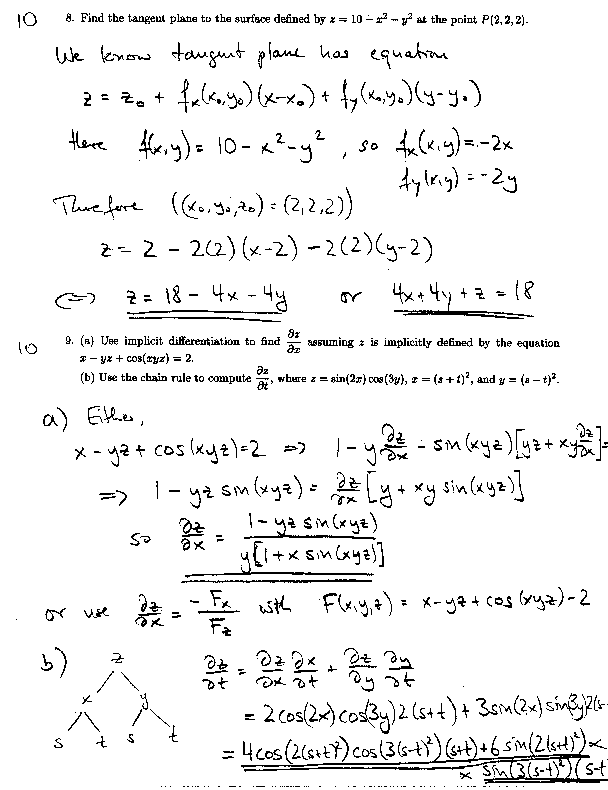 10 8. Find the tangent plane to the surface defined by z = 10 − x² − y² at the point P(2, 2, 2).
We know tangent plane has equation
z = z₀ + fₓ(x₀,y₀)(x-x₀) + f_y(x₀,y₀)(y-y₀)
Here f(x,y) = 10 - x² - y², so fₓ(x,y) = -2x
f_y(x,y) = -2y
Therefore ((x₀,y₀,z₀) = (2,2,2))
z = 2 - 2(2)(x-2) - 2(2)(y-2)
⇔ z = 18 - 4x - 4y or 4x + 4y + z = 18
10 9. (a) Use implicit differentiation to find ∂z/∂x assuming z is implicitly defined by the equation
x − yz + cos(xyz) = 2.
(b) Use the chain rule to compute ∂z/∂t, where z = sin(2x) cos(3y), x = (s + t)², and y = (s − t)².
a) Either,
x - yz + cos(xyz) = 2 ⇒ 1 - y ∂z/∂x - sin(xyz)[yz + xy ∂z/∂x] =
⇒ 1 - yz sin(xyz) = ∂z/∂x [y + xy sin(xyz)]
so ∂z/∂x = 1 - yz sin(xyz) / y[1 + x sin(xyz)]
or use ∂z/∂x = -Fₓ/F_z with F(x,y,z) = x - yz + cos(xyz) - 2
b) z
x y
s t s t
∂z/∂t = ∂z/∂x ∂x/∂t + ∂z/∂y ∂y/∂t
= 2cos(2x)cos(3y)2(s+t) + 3sin(2x)sin(3y)2(s-
= 4cos(2(s+t)²)cos(3(s-t)²)(s+t) + 6 sin(2(s+t)²) ×
× sin(3(s-t)²)(s-t